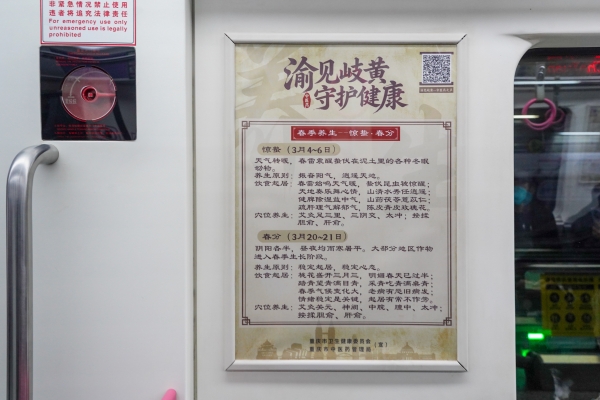 非紧急情况禁止使用
违者将追究法律责任
For emergency use only
unreasoned use is legally
prohibited
渝见岐黄
守护健康
春季养生--惊蛰·春分
惊蛰（3月4~6日）
天气转暖，春雷象醒蛰伏在泥土里的各种冬眠
动物。
养生原则：振奋阳气，逍遥天地。
饮食起居：春雷始鸣天气暖，蛰伏昆虫被惊醒；
天地委乐舞心情，山清水秀任逍遥；
健脾除湿益中气，山药茯苓薏苡仁；
疏肝理气解郁气，陈皮青皮玫瑰花。
穴位养生：艾灸足三里、三阴交、太冲；按揉
胆俞、肝俞。
春分（3月20~21日）
阴阳各半，昼夜均而寒暑平。大部分地区作物
进入春季生长阶段。
养生原则：稳定起居，稳定心态。
饮食起居：桃花盛开三月三，明媚春天已过半；
踏青望青满目青，采青吃青满桌青；
春季气候变化大，老病有恙旧病发；
情绪稳定是关键，起居有常不作劳。
穴位养生：艾灸关元、神阙、中脘、膻中、太冲；
按揉胆俞、肝俞。
重庆市卫生健康委员会
重庆市中医药管理局
（宣）